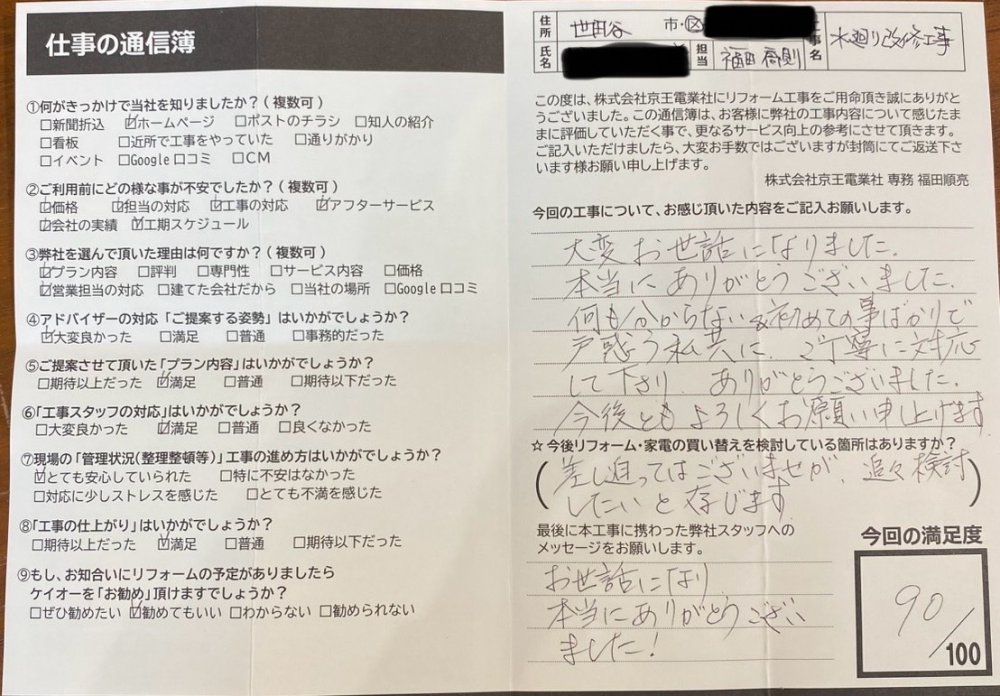 仕事の通信簿
①何がきっかけで当社を知りましたか?(複数可)
□新聞折込 ☑ホームページ □ポストのチラシ □知人の紹介
□看板 □近所で工事をやっていた □通りがかり
□イベント □Google口コミ □CM
②ご利用前にどの様な事が不安でしたか?(複数可)
☑価格 ☑担当の対応 ☑工事の対応 ☑アフターサービス
☑会社の実績 ☑工期スケジュール
③弊社を選んで頂いた理由は何ですか?(複数可)
☑プラン内容 □評判 □専門性 □サービス内容 □価格
☑営業担当の対応 □建てた会社だから □当社の場所 □Google口コミ
④アドバイザーの対応「ご提案する姿勢」はいかがでしょうか?
☑大変良かった □満足 □普通 □事務的だった
⑤ご提案させて頂いた「プラン内容」はいかがでしょうか?
□期待以上だった ☑満足 □普通 □期待以下だった
⑥「工事スタッフの対応」はいかがでしょうか?
□大変良かった ☑満足 □普通 □良くなかった
⑦現場の「管理状況(整理整頓等)」工事の進め方はいかがでしょうか?
☑とても安心していられた □特に不安はなかった
□対応に少しストレスを感じた □とても不満を感じた
⑧「工事の仕上がり」はいかがでしょうか?
□期待以上だった ☑満足 □普通 □期待以下だった
⑨もし、お知合いにリフォームの予定がありましたら
ケイオーを「お勧め」頂けますでしょうか?
□ぜひ勧めたい ☑勧めてもいい □わからない □勧められない
住所 世田谷 市・区
氏名 担当 福田 事名 水廻り改修工事
この度は、株式会社京王電業社にリフォーム工事をご用命頂き誠にありがと
うございました。この通信簿は、お客様に弊社の工事内容について感じたま
まに評価していただく事で、更なるサービス向上の参考にさせて頂きます。
ご記入いただけましたら、大変お手数ではございますが封筒にてご返送下さ
います様お願い申し上げます。
株式会社京王電業社 専務 福田順亮
今回の工事について、お感じ頂いた内容をご記入お願いします。
大変お世話になりました。
本当にありがとうございました。
何も分からない 初めての事ばかりで
戸惑う私共に、ご丁寧に対応
して下さり ありがとうございました。
今後ともよろしくお願い申し上げます
☆今後リフォーム・家電の買い替えを検討している箇所はありますか?
(差し迫ってはございませが、追々検討
したいと存じます)
最後に本工事に携わった弊社スタッフへの
メッセージをお願いします。
お世話になり
本当にありがとうござい
ました!
今回の満足度
90/100